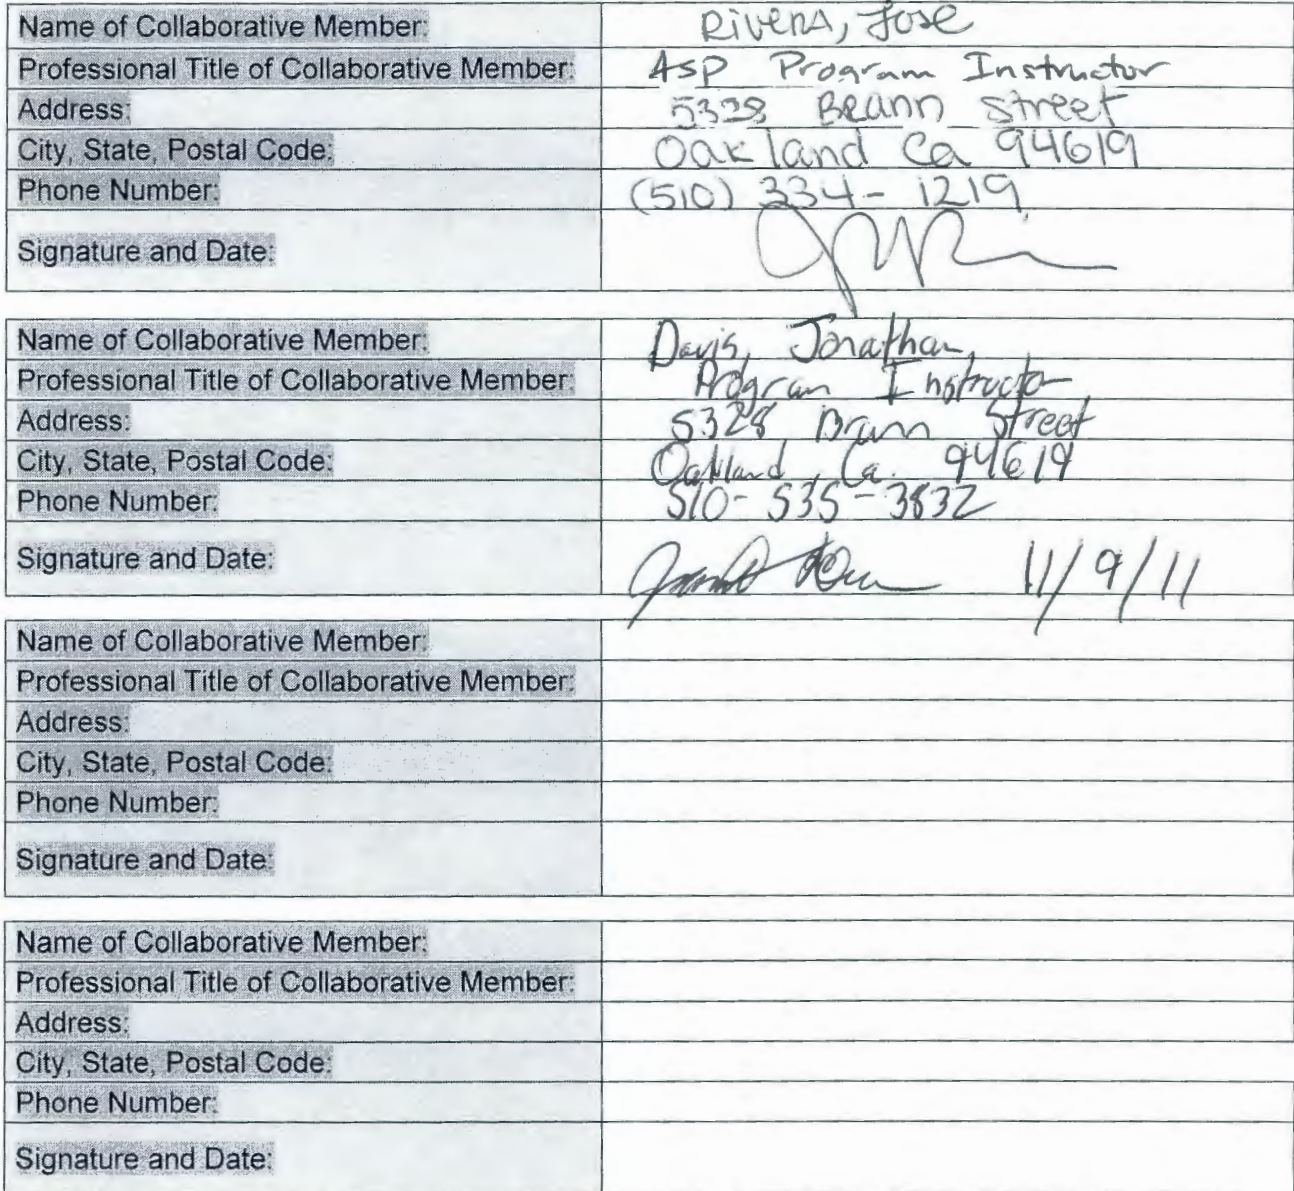 Name of Collaborative Member: Rivera, Jose
Professional Title of Collaborative Member: ASP Program Instructor
Address: 5328 Brann street
City, State, Postal Code: Oakland Ca 94619
Phone Number: (510) 334-1219
Signature and Date:
Name of Collaborative Member: Davis, Jonathan,
Professional Title of Collaborative Member: Program Instructor
Address: 5328 Brann Street
City, State, Postal Code: Oakland, Ca. 94619
Phone Number: 510-535-3832
Signature and Date: 11/9/11
Name of Collaborative Member:
Professional Title of Collaborative Member:
Address:
City, State, Postal Code:
Phone Number:
Signature and Date:
Name of Collaborative Member:
Professional Title of Collaborative Member:
Address:
City, State, Postal Code:
Phone Number:
Signature and Date: